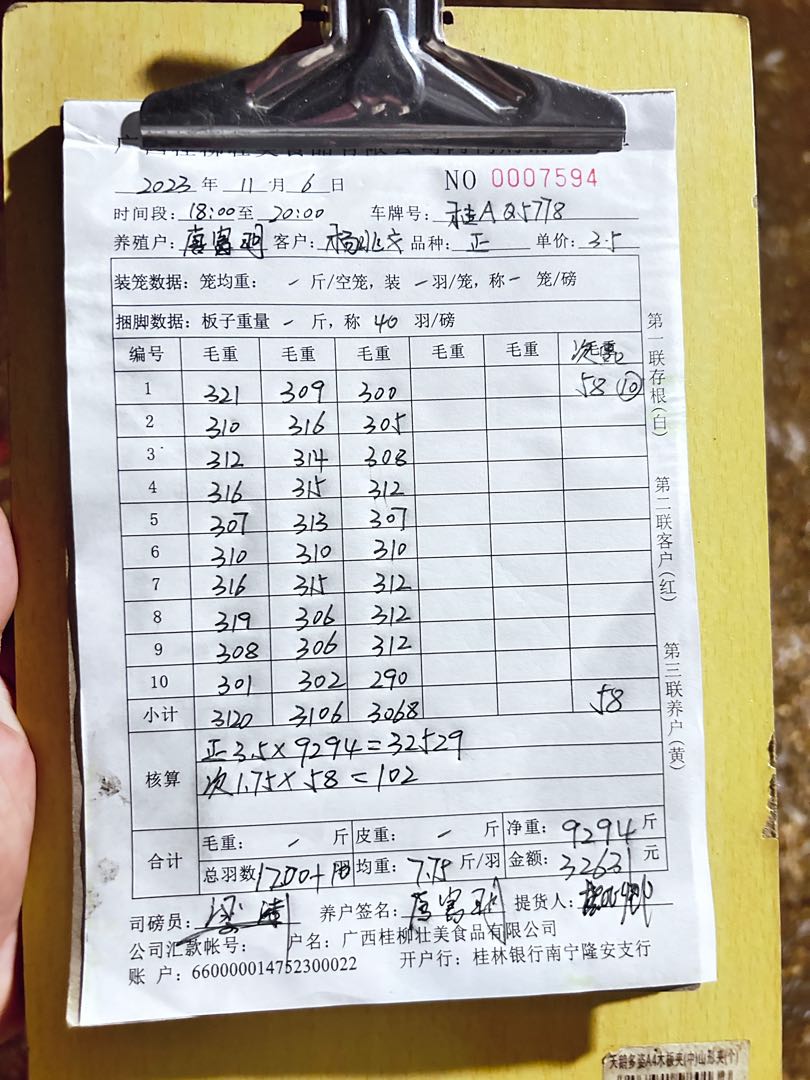 2023 年 11 月 6 日 NO 0007594
时间段: 18:00 至 20:00 车牌号: 桂A Q5778
养殖户: 唐富 客户: 杨 品种: 正 单价: 3.5
装笼数据: 笼均重: - 斤/空笼, 装 - 羽/笼, 称 - 笼/磅
捆脚数据: 板子重量 - 斤, 称 40 羽/磅
编号 毛重 毛重 毛重 毛重 毛重 次
1 321 309 300 58 ⑩
2 310 316 305
3 312 314 308
4 316 315 312
5 307 313 307
6 310 310 310
7 316 315 312
8 319 306 312
9 308 306 312
10 301 302 290
小计 3120 3106 3068 58
核算 正3.5×9294=32529
次1.75×58=102
合计 毛重: - 斤 皮重: - 斤 净重: 9294 斤
总羽数 1200+10 均重: 7.75 斤/羽 金额: 32631 元
司磅员: 养户签名: 唐富 提货人:
公司汇款帐号: 户名: 广西桂柳壮美食品有限公司
账 户: 660000014752300022 开户行: 桂林银行南宁隆安支行
第一联存根(白)
第二联客户(红)
第三联养户(黄)
天鹅多姿A4木板夹(中)山形夹(个)